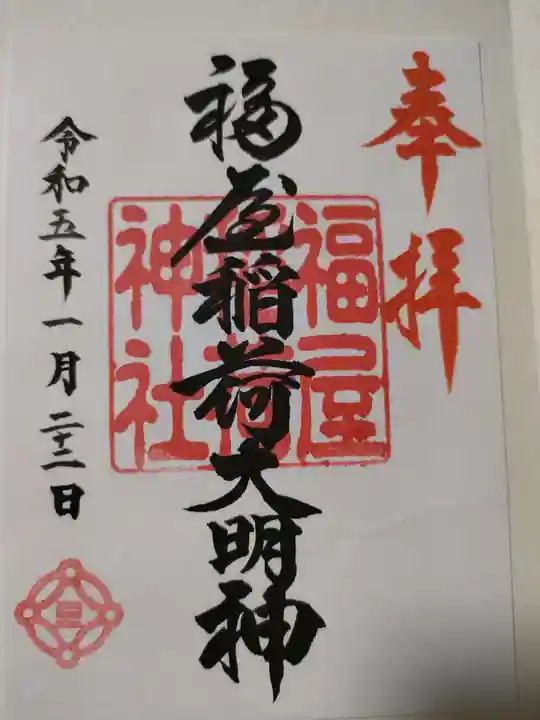 奉拝
福屋稲荷大明神
福屋
稲荷
神社
令和五年一月二十二日
三